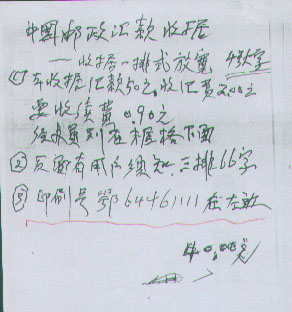 中国邮政汇款收据
一收据一排式放宽 4款字
① 本收据汇款50元,收汇费2.00元
要收续费 0.90元
经办员别在框格下面
② 反面有用户须知 三排66字
③ 印刷号 鄂64461111 在左
40.00元